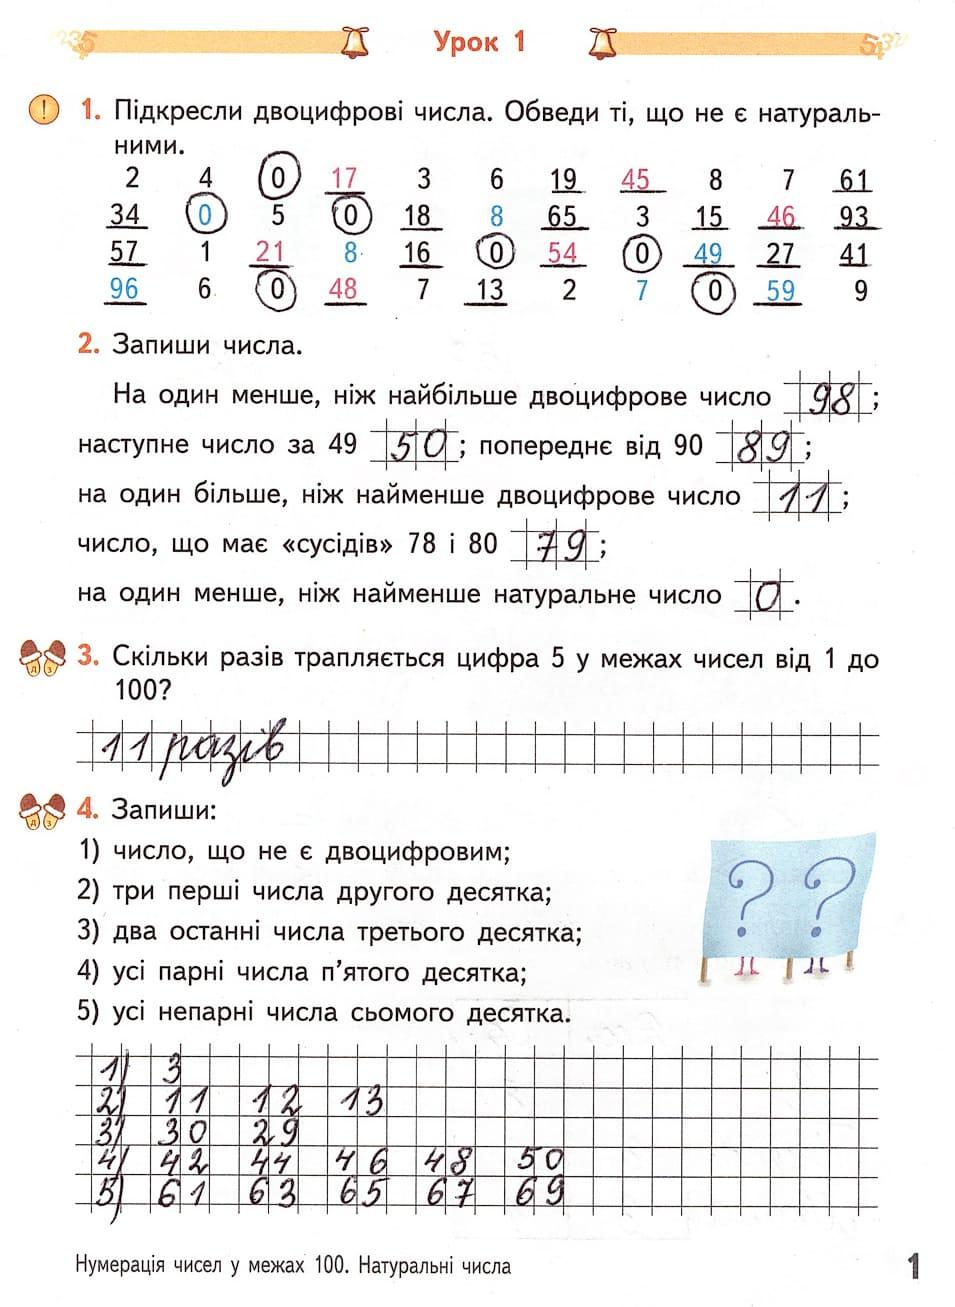 Урок 1
1. Підкресли двоцифрові числа. Обведи ті, що не є натураль-
ними.
2 4 0 17 3 6 19 45 8 7 61
34 0 5 0 18 8 65 3 15 46 93
57 1 21 8 16 0 54 0 49 27 41
96 6 0 48 7 13 2 7 0 59 9
2. Запиши числа.
На один менше, ніж найбільше двоцифрове число 98;
наступне число за 49 50; попереднє від 90 89;
на один більше, ніж найменше двоцифрове число 11;
число, що має «сусідів» 78 і 80 79;
на один менше, ніж найменше натуральне число 0.
3. Скільки разів трапляється цифра 5 у межах чисел від 1 до
100?
11 разів
4. Запиши:
1) число, що не є двоцифровим;
2) три перші числа другого десятка;
3) два останні числа третього десятка;
4) усі парні числа п’ятого десятка;
5) усі непарні числа сьомого десятка.
? ?
1) 3
2) 11 12 13
3) 30 29
4) 42 44 46 48 50
5) 61 63 65 67 69
Нумерація чисел у межах 100. Натуральні числа 1